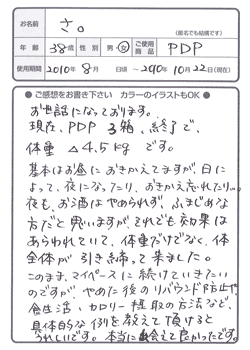 お名前 さ。
(匿名でも結構です)
年齢 38歳 性別 男・女 ご使用商品 PDP
使用期間 2010年8月 日頃 ~ 2010年10月22日(現在)
●ご感想をお書き下さい カラーのイラストもOK●
お世話になっております。
現在、PDP 3箱、終了で、
体重 △4.5kg です。
基本はお昼におきかえてますが、日に
よって、夜になったり、おきかえ忘れたり。
夜も、お酒はやめられず、ふまじめな
方だと思いますが、それでも効果は
あらわれていて、体重だけでなく、体
全体が引き締って来ました。
このまま、マイペースに続けていきたい
のですが、やめた後のリバウンド防止や
食生活、カロリー摂取の方法など、
具体的な例を教えて頂けると
うれしいです。本当に出会えて良かったです。